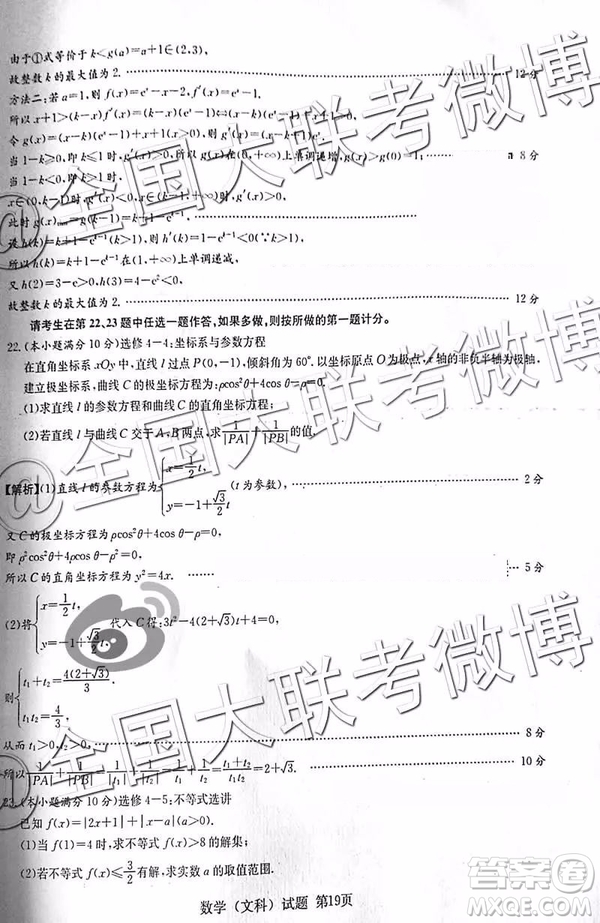 由于①式等价于k<g(a)=a+1∈(2,3),
故整数k的最大值为2. 12分
方法二:若a=1,则f(x)=eˣ-x-1,f′(x)=eˣ-1,
所以x+1>(k-x)f′(x)=(k-x)(eˣ-1)
令g(x)=(x-k)(eˣ-1)+x+1,则g′(x)
当1-k≥0,即k≤1时,g′(x)>0,所以g(x)在(0,+∞)上单调递增,g(x)>g(0)=1; 8分
当1-k<0,即k>1时,
x∈(0,k-1)时,g′(x)<0,x∈
此时g(x)
设h(k)=k+1-eᵏ⁻¹(k>1),则h′(k)=1-eᵏ⁻¹<0(∵k>1).
所以h(k)=k+1-eᵏ⁻¹在(1,+∞)上单调递减.
又h(2)=3-e>0,h(3)=4-e²<0,
故整数k的最大值为2. 12分
请考生在第22、23题中任选一题作答,如果多做,则按所做的第一题计分。
22.(本小题满分10分)选修4-4:坐标系与参数方程
在直角坐标系xOy中,直线l过点P(0,-1),倾斜角为60°.以坐标原点O为极点,x轴的非负半轴为极轴,
建立极坐标系,曲线C的极坐标方程为ρcos²θ+4cosθ-ρ=0.
(1)求直线l的参数方程和曲线C的直角坐标方程;
(2)若直线l与曲线C交于A、B两点,求1/|PA|+1/|PB|的值.
【解析】(1)直线l的参数方程为{x=1/2t, y=-1+√3/2t (t为参数), 2分
又C的极坐标方程为ρcos²θ+4cosθ-ρ=0,
即ρ²cos²θ+4ρcosθ-ρ²=0,
所以C的直角坐标方程为y²=4x. 5分
(2)将{x=1/2t, y=-1+√3/2t, 代入C得:3t²-4(2+√3)t+4=0
则{t₁+t₂=4(2+√3)/3, t₁t₂=4/3.
从而t₁>0,t₂>0. 8分
所以1/|PA|+1/|PB|=1/|t₁|+1/|t₂|=1/t₁+1/t₂=(t₁+t₂)/t₁t₂=2+√3. 10分
23.(本小题满分10分)选修4-5:不等式选讲
已知f(x)=|2x+1|+|x-a|(a∈R).
(1)当a=4时,求不等式f(x)>8的解集;
(2)若不等式f(x)≤3/2有解,求实数a的取值范围.
数学(文科)试题 第19页
@全国大联考微博
@全国大联考微博
@全国大联考微博
答案圈
MXQE.COM